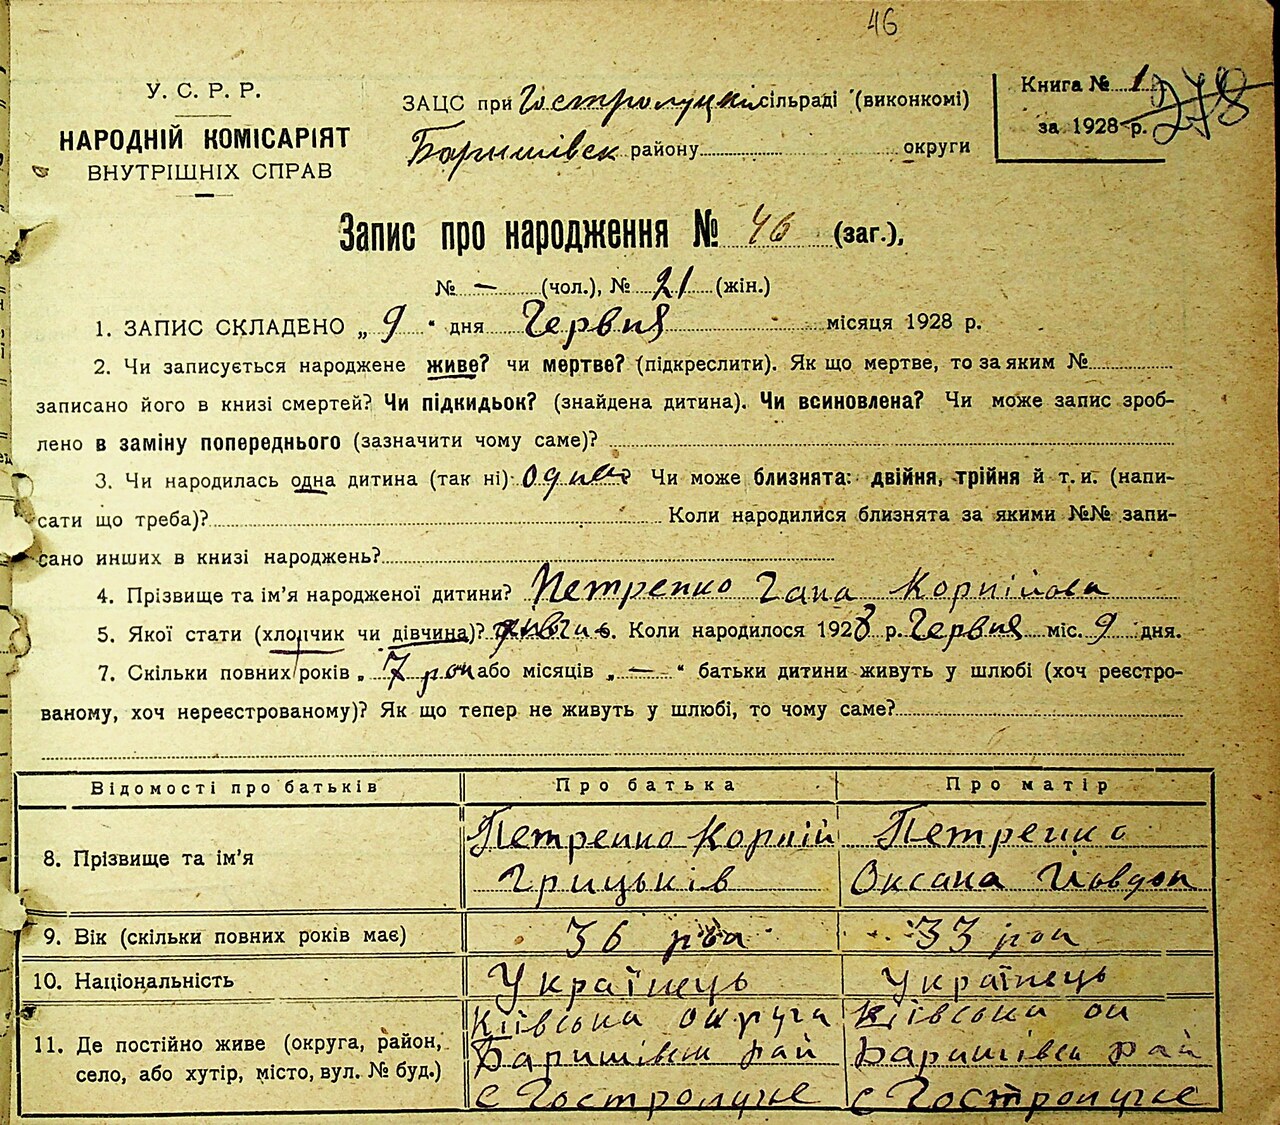 46
У. С. Р. Р.
НАРОДНІЙ КОМІСАРІЯТ
ВНУТРІШНІХ СПРАВ
ЗАЦС при Гостролуцькі сільраді (виконкомі)
Баришівск району округи
Книга № 1
за 1928 р.
278
Запис про народження № 46 (заг.),
№ — (чол.), № 21 (жін.)
1. ЗАПИС СКЛАДЕНО „ 9 " дня Червня місяця 1928 р.
2. Чи записується народжене живе? чи мертве? (підкреслити). Як що мертве, то за яким №
записано його в книзі смертей? Чи підкидьок? (знайдена дитина). Чи всиновлена? Чи може запис зроб-
лено в заміну попереднього (зазначити чому саме)?
3. Чи народилась одна дитина (так ні) Одна Чи може близнята: двійня, трійня й т. и. (напи-
сати що треба)? Коли народилися близнята за якими №№ запи-
сано инших в книзі народжень?
4. Прізвище та ім'я народженої дитини? Петренко Гана Корнійова
5. Якої стати (хлопчик чи дівчина)? Коли народилося 1928 р. Червня міс. 9 дня.
7. Скільки повних років „ 7 рок або місяців „ — " батьки дитини живуть у шлюбі (хоч реєстро-
ваному, хоч нереєстрованому)? Як що тепер не живуть у шлюбі, то чому саме?
Відомості про батьків Про батька Про матір
8. Прізвище та ім'я Петренко Корній Петренко
Грицьків Оксана Йовдок
9. Вік (скільки повних років має) 36 рок 33 рок
10. Національність Українець Українець
11. Де постійно живе (округа, район, село, або хутір, місто, вул. № буд.) Київська округа Київська ок
Баришівськ рай Баришівськ рай
с Гостролуччє с Гостролуччє